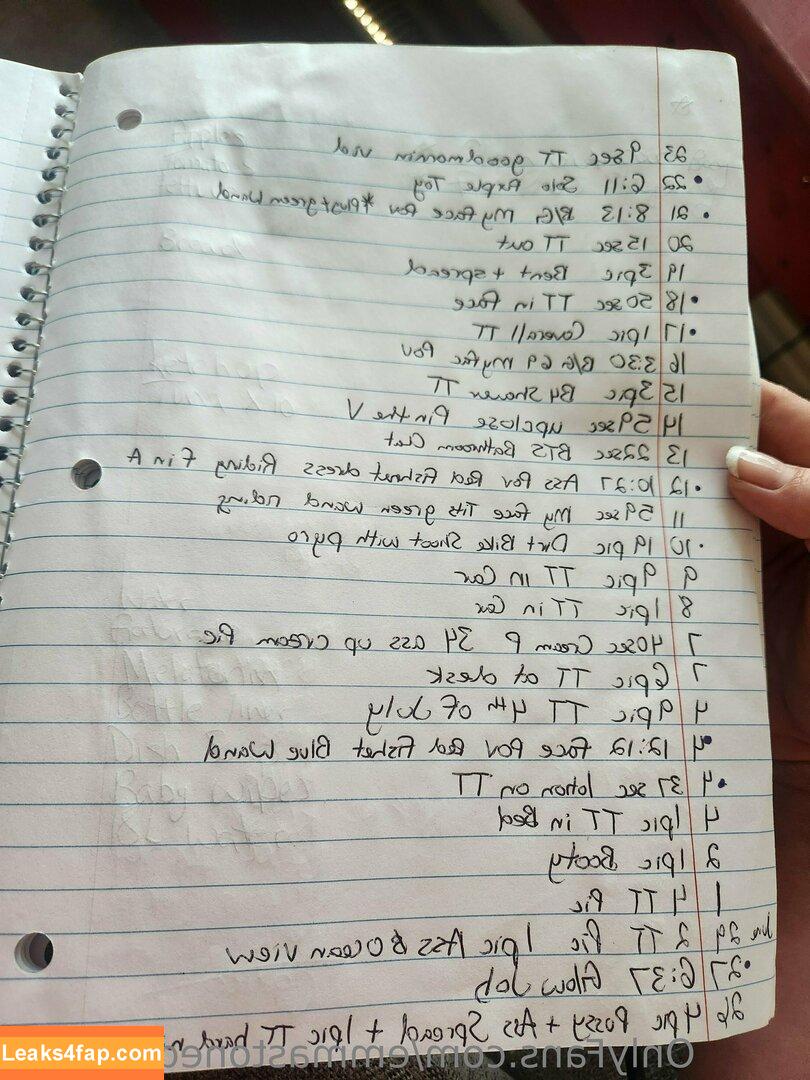 23 9sec TT goodmornin vid
• 22 6:11 Solo Purple Toy
• 21 8:13 B/G My face Pov *Plug+green wand
20 15sec TT out
19 3pic Bent + spread
• 18 50sec TT in face
• 17 1pic Coverall TT
16 3:30 B/G 69 my fac Pov
15 3pic B4 Shower TT
14 59sec upclose P in the V
13 22sec BTS Bathroom Cut
• 12 10:27 Ass Pov Red Fishnet dress Riding F in A
11 59sec My face Tits green wand riding
• 10 19pic Dirt Bike Shoot with pyro
9 9pic TT in Car
8 1pic TT in Car
7 40sec Cream P 34 ass up cream Pic
7 6pic TT at desk
4 9pic TT 4th of July
• 4 12:12 face POV Red Fishet Blue Wand
• 4 37 sec lotion on TT
4 1pic TT in Bed
2 1pic Booty
1 4 TT Pic
June 29 2 TT Pic 1pic Ass & Ocean View
• 27 6:37 Blow Job
26 4pic Possy + Ass Spread + 1pic TT hard
Leaks4fap.com